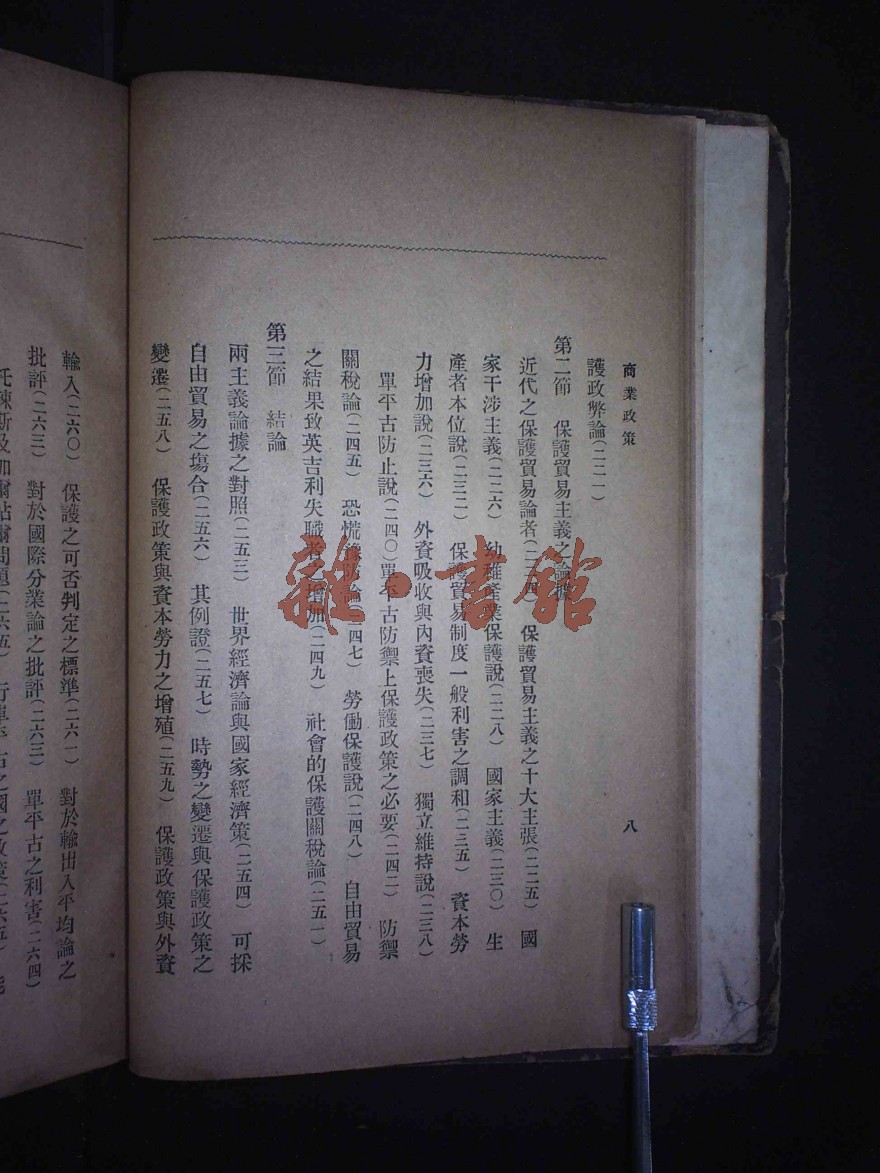 商業政策
八
護政弊論(二二一)
第二節 保護貿易主義之論據
近代之保護貿易論者(二二四) 保護貿易主義之十大主張(二二五) 國
家干涉主義(二二六) 幼稚產業保護說(二二八) 國家主義(二三〇) 生
產者本位說(二三二) 保護貿易制度一般利害之調和(二三五) 資本勞
力增加說(二三六) 外資吸收與內資喪失(二三七) 獨立維持說(二三八)
單平古防止說(二四〇)單平古防禦上保護政策之必要(二四二) 防禦
關稅論(二四五) 恐慌豫防論(二四七) 勞働保護說(二四八) 自由貿易
之結果致英吉利失職者之增加(二四九) 社會的保護關稅論(二五一)
第三節 結論
兩主義論據之對照(二五三) 世界經濟論與國家經濟策(二五四) 可採
自由貿易之塲合(二五六) 其例證(二五七) 時勢之變遷與保護政策之
變遷(二五八) 保護政策與資本勞力之增殖(二五九) 保護政策與外資
輸入(二六〇) 保護之可否判定之標準(二六一) 對於輸出入平均論之
批評(二六三) 對於國際分業論之批評(二六三) 單平古之利害(二六四)
雜·書館